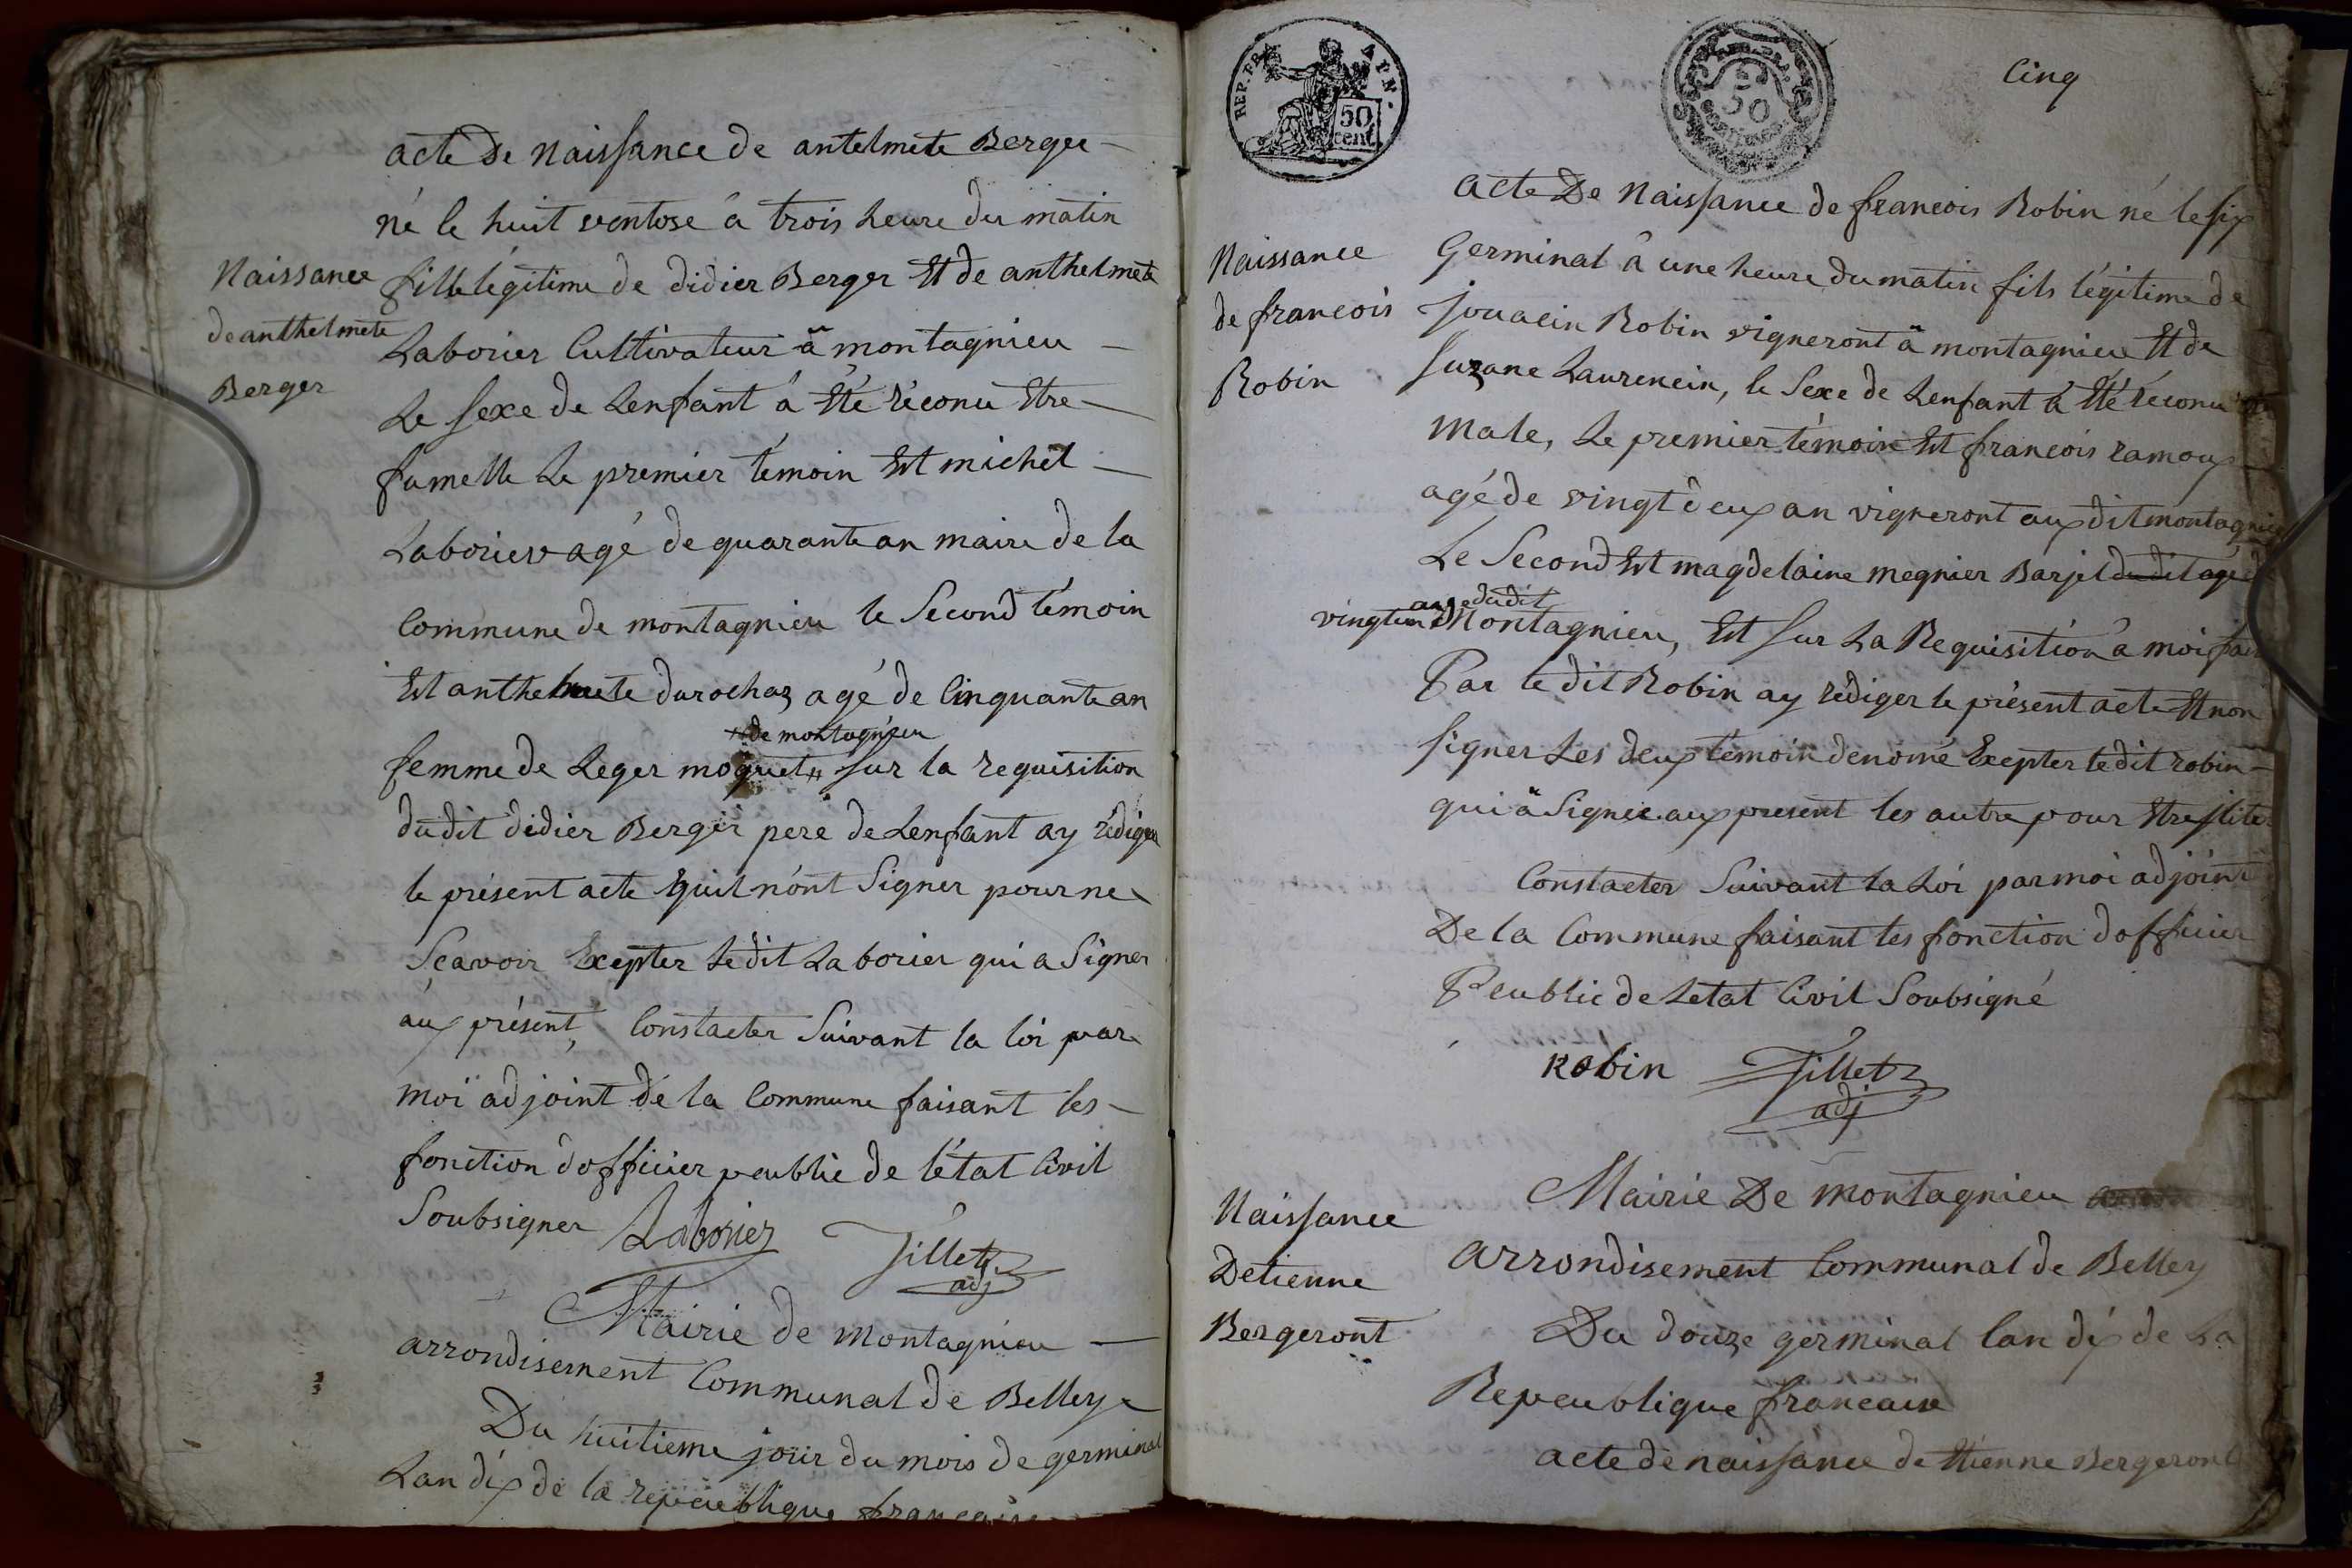 acte De Naissance de antelmete Berger
né le huit ventose a trois heure du matin
Naissance
de anthelmete
Berger
fille légitime de didier Berger Et de anthelmete
Laborier Cultivateur a montagnieu
Le sexe de Lenfant a Eté réconu Etre
fumelle Le premier témoin Est michel
Laborier agé de quarante an maire de la
Commune de montagnieu le Second témoin
Est anthelmete durochaz agé de Cinquante an
de montagnieu
femme de Leger moquet sur la requisition
dudit didier Berger pere de Lenfant ay rédiger
le présent acte quil nont Signer pour ne
Scavoir Excepter Ledit Laborier qui a Signer
aux présent, Constaeter Suivant la loi par
moi adjoint de la Commune faisant les
fonction dofficier peublic de létat Civil
Soubsigner Laborier Tillet
adj
Mairie de Montagnieu
arrondisement Communal de Belley
Du huitieme jour du mois de germinal
Lan dix de la repeublique francaise
REP. FRA
APN.
50
cent
50
Cinq
acte De Naissance de francois Robin né le six
Naissance
de francois
Robin
Germinal a une heure du matin fils légitime de
jouacin Robin vigneront a montagnieu Et de
suzane Laurencin, le Sexe de Lenfant a Eté réconu
Male, Le premier témoin Est francois ramoux
agé de vingt deux an vigneront aux dit montagnieu
Le Second Est magdelaine megnier Barjet dudit agé d
dudit
Montagnieu, Est sur La Requisition a moi fait
Par ledit Robin ay rédiger le présent acte Et non
signer Les deux témoin denomé Excepter ledit robin
qui a Signer aux present les autre pour Etre iliter
Constaeter Suivant la Loi par moi adjoint
De la Commune faisant les fonction dofficier
Peublic de Letat Civil Soubsigné
Robin Tillet
adj
Mairie De Montagnieu
Naissance
Detienne
Bergeront
arrondisement Communal de Belley
Du douze germinal lan dix de La
Repeublique francaise
acte de naissance de Etienne Bergeront